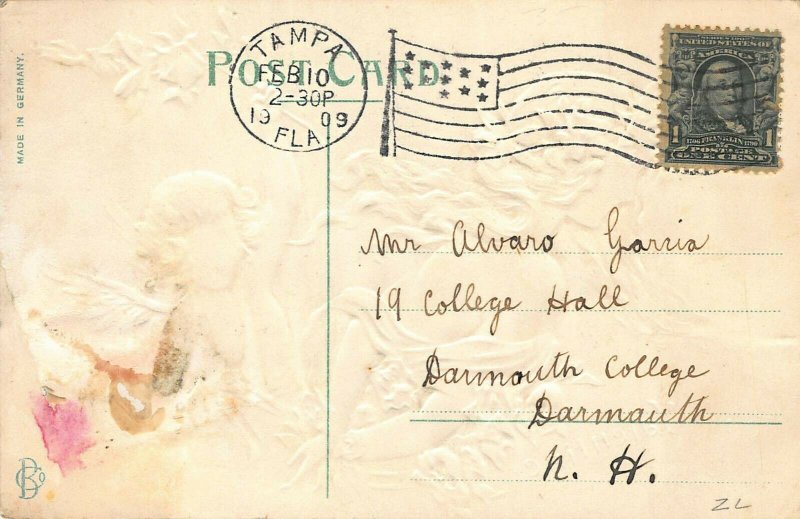 MADE IN GERMANY.
POST CARD
TAMPA
FEB 10
2-30P
19 09
FLA.
UNITED STATES OF
AMERICA
1 1706 FRANKLIN 1790 1
POSTAGE
ONE CENT
Mr Alvaro Garcia
19 College Hall
Darmouth College
Darmauth
N. H.
ZL